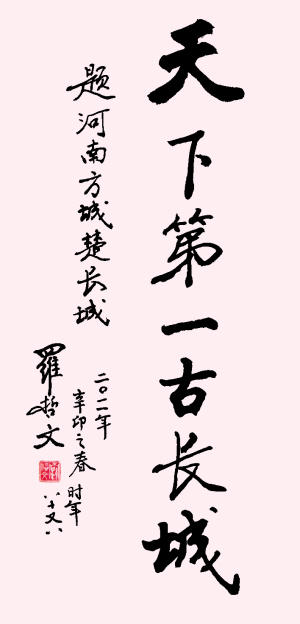 天下第一古长城
题河南方城楚长城
二〇一一年
辛卯之春
时年
八十又八
羅哲文